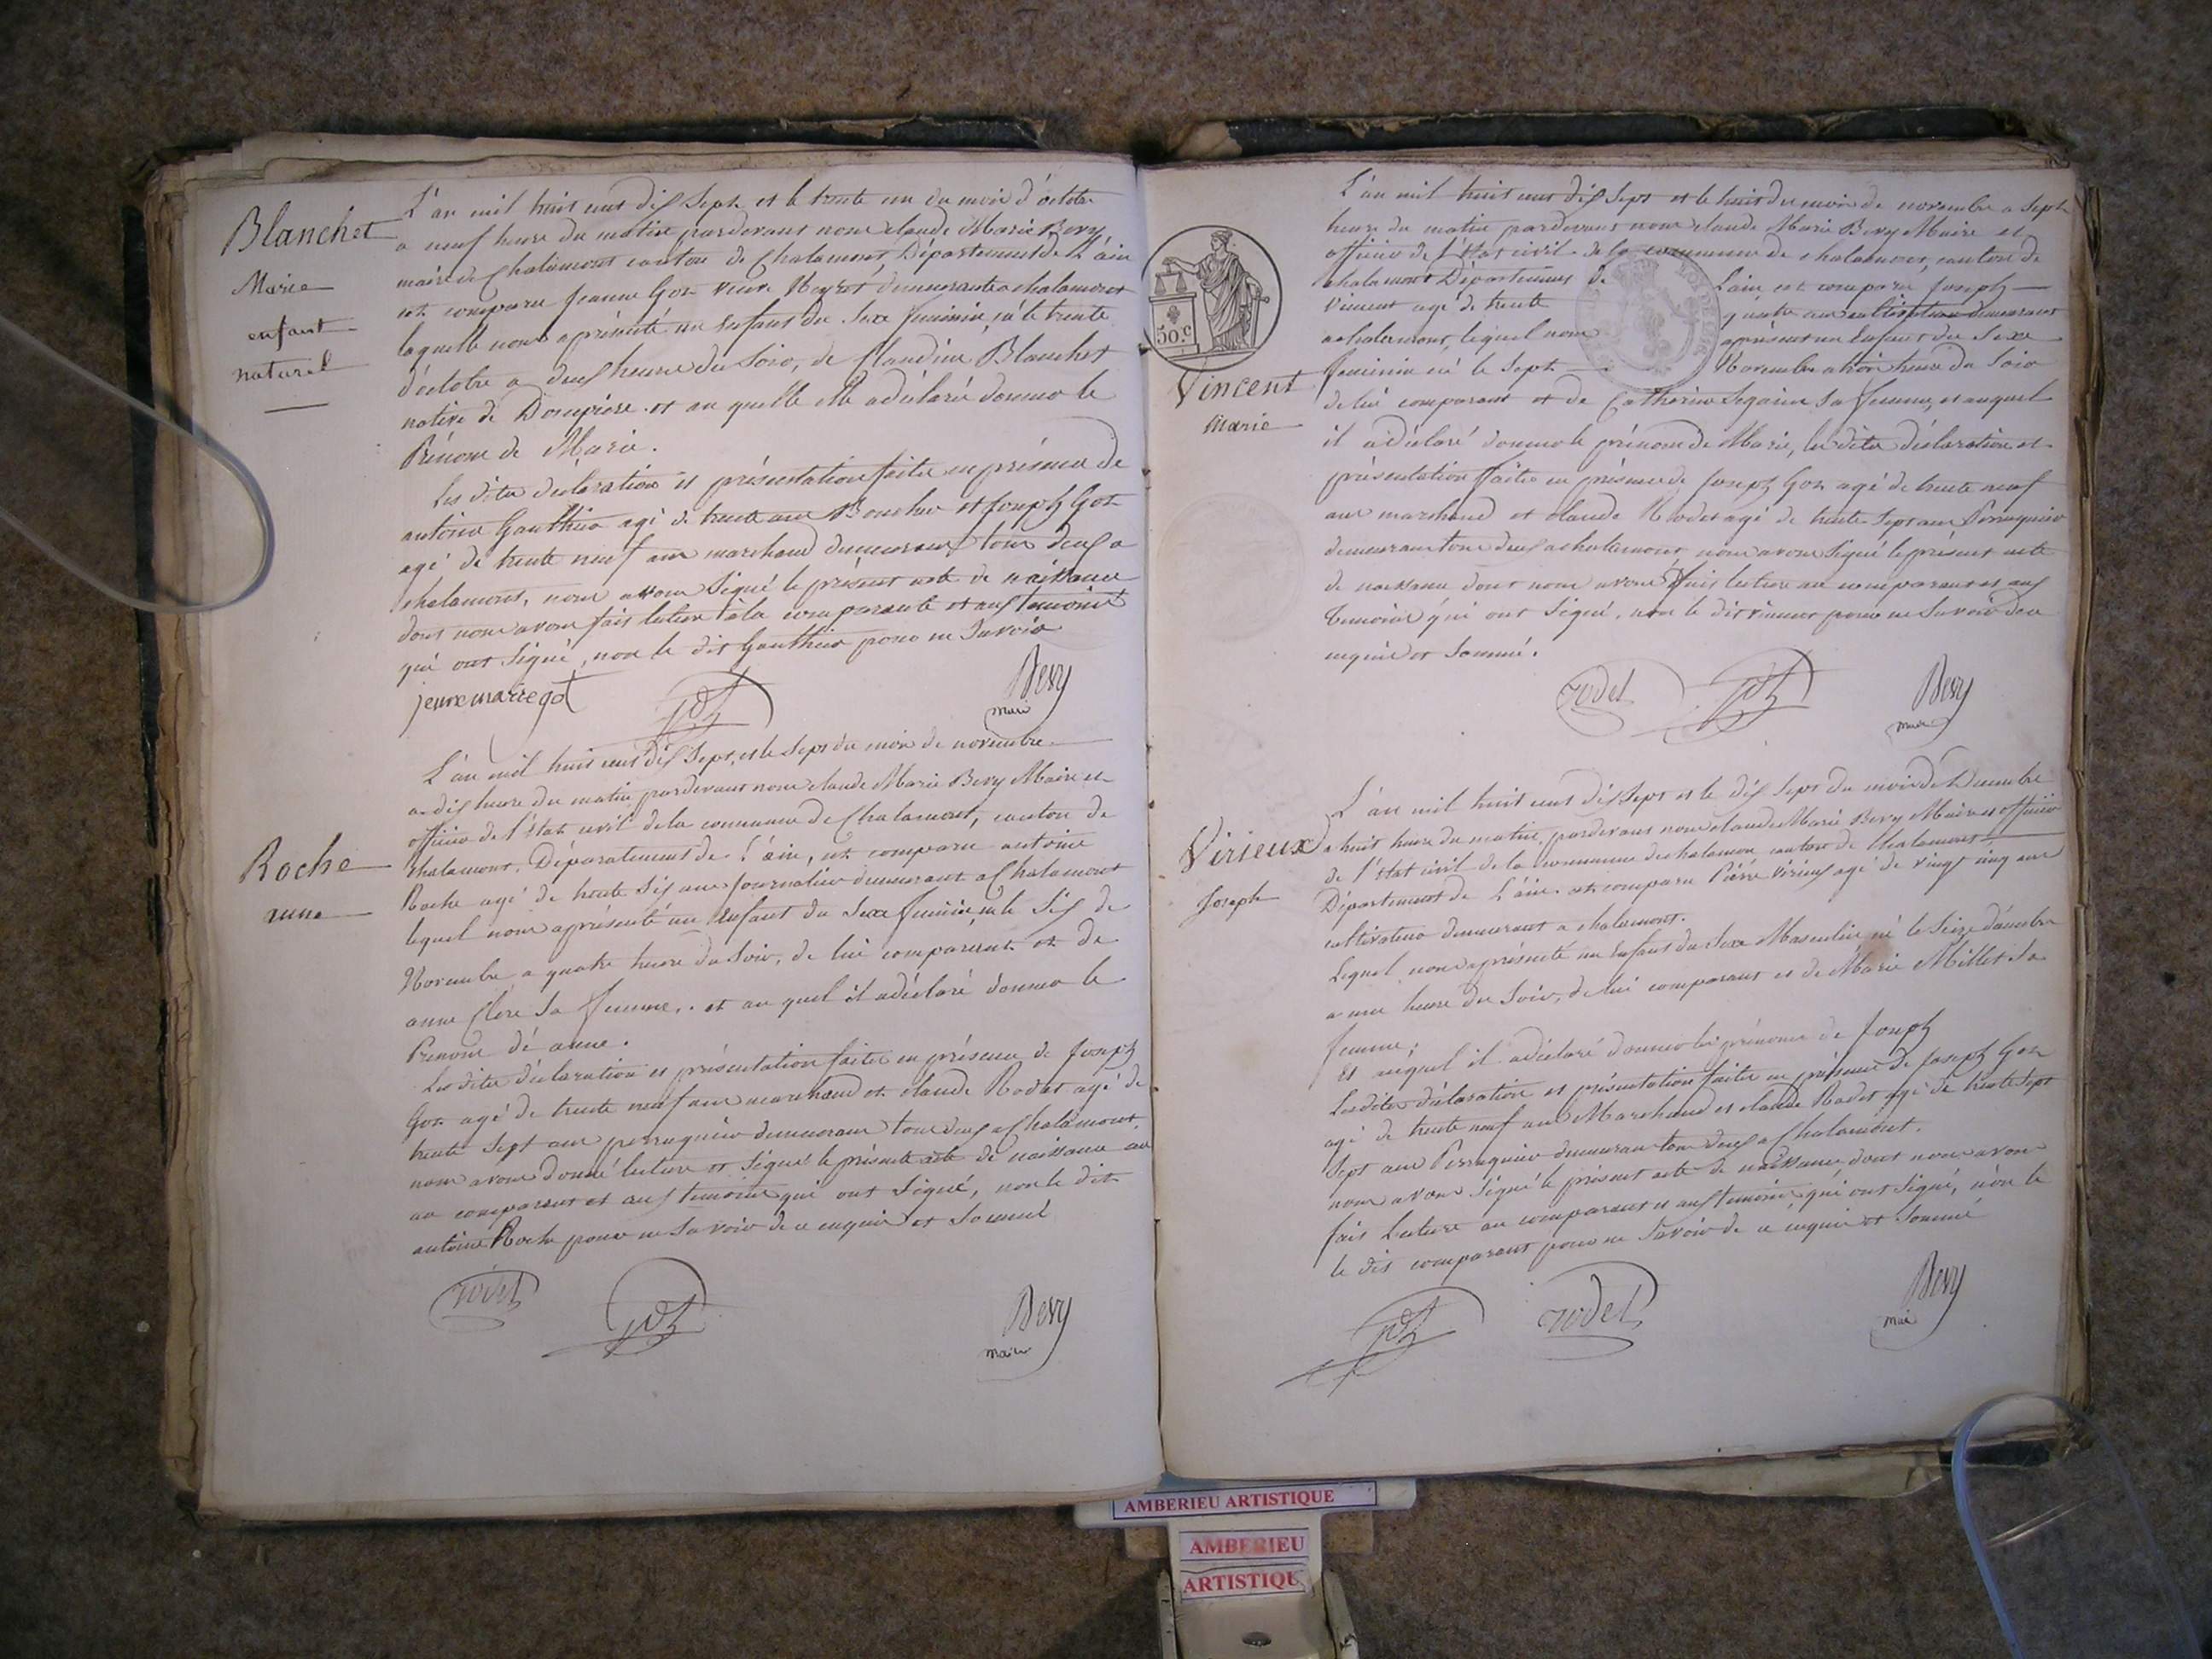 Blanchet
Marie
enfant
naturel
L'an mil huit cent dix Sept et le trente un du mois d'octobre
a neuf heure du matin pardevant nous claude Marie Bevy,
maire de Chalamont canton de Chalamont, Département de L'ain
est comparu Jeanne Got veuve demeurante a chalamont
laquelle nous a présenté un Enfant du Sexe féminin, né le trente
d'octobre a deux heure du Soir, de Claudine Blanchet
native de Dompière et au quelle elle a déclaré donner le
Prénom de Marie.
Les dites déclaration et présentation faites en présence de
antoine Gauthier agé de trente ans Boucher et Joseph Got
agé de trente neuf ans marchand demeurans tous deux a
chalamont, nous avons Signé le présent acte de naissance
dont nous avons fais lecture à la comparante et aux temoins
qui ont Signé, non le dit Gauthier pour ne Savoir
jeanne marie got
Bevy
maire
Roche
anne
L'an mil huit cent dix Sept, et le Sept du mois de novembre
a dix heure du matin pardevant nous claude Marie Bevy Maire et
officier de l'état civil de la commune de Chalamont, canton de
chalamont, Département de L'ain, est comparu antoine
Roche agé de trente Six ans Journalier demeurant a Chalamont
lequel nous a présenté un Enfant du Sexe féminin, né le Six de
Novembre a quatre heure du Soir, de lui comparant et de
anne Clere Sa femme, et au quel il a déclaré donner le
Prenom dé anne.
Les dites déclaration et présentation faites en présence de Joseph
Got agé de trente neuf ans marchand et claude Rodet agé de
trente Sept ans perruquier demeurans tous deux a Chalamont.
nous avons donné lecture et Signé le présent acte de naissance au
au comparant et aux temoins qui ont Signé, non le dit
antoine Roche pour ne Savoir de ce enquis et Sommé
rodet
Bevy
maire
50.c
Vincent
Marie
L'an mil huit cent dix Sept et le huit du mois de novembre a Sept
heure du matin pardevant nous claude Marie Bevy Maire et
officier de L'état civil de la commune de chalamont, canton de
chalamont Département de L'ain est comparu Joseph
Vincent agé de trente quatre ans cultivateur demeurant
a chalamont, lequel nous a présenté un Enfant du Sexe
féminin né le Sept Novembre a trois heure du Soir
de lui comparant et de Catherine Sa femme, et auquel
il a déclaré donner le prénom de Marie, les dites déclaration et
présentation faites en présence de Joseph Got agé de trente neuf
ans marchand et claude Rodet agé de trente Sept ans Perruquier
demeurans tous deux a chalamont, nous avons Signé le présent acte
de naissance dont nous avons fais lecture au comparant et aux
temoins qui ont Signé, non le dit vincent pour ne Savoir de ce
enquis et Sommé.
rodet
Bevy
maire
Virieux
Joseph
L'an mil huit cent dix Sept et le dix Sept du mois de Décembre
a huit heure du matin, pardevant nous claude Marie Bevy Maire et officier
de l'état civil de la commune de chalamon canton de Chalamont
Département de L'ain est comparu Pierre Virieux agé de vingt cinq ans
cultivateur demeurant a chalamont.
Lequel nous a présenté un Enfant du Sexe Masculin, né le Seize décembre
a une heure du Soir, de lui comparant et de Marie Millet Sa
femme;
Et auquel il a déclaré donner les prénoms de Joseph
Les dites déclaration et présentation faites en présence de Joseph Got
agé de trente neuf ans Marchand et claude Rodet agé de trente Sept
Sept ans Perruquier demeurans tous deux a Chalamont.
nous avons Signé le présent acte de naissance, dont nous avons
fais Lecture au comparant et aux temoins qui ont Signé, non le
le dit comparant pour ne Savoir de ce enquis et Sommé
rodet
Bevy
maire
AMBERIEU ARTISTIQUE
AMBERIEU
ARTISTIQU